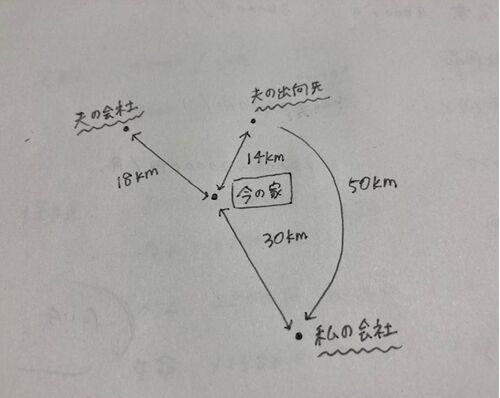 夫の会社
夫の出向先
18km
14km
今の家
50km
30km
私の会社